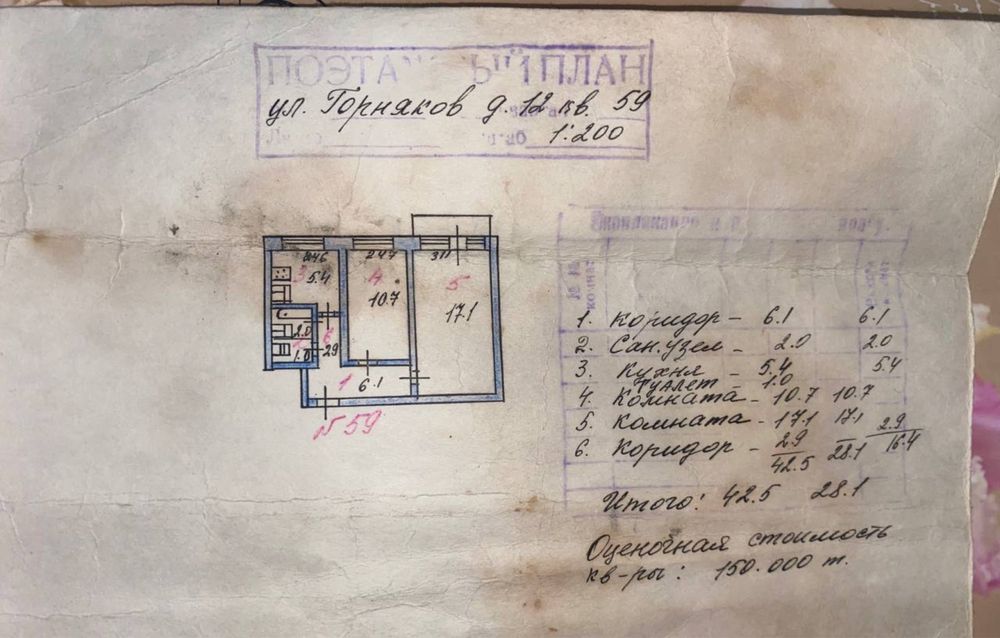 ПОЭТАЖНЫЙ ПЛАН
ул. Горняков д. 12 кв. 59
1:200
2.46 2.47 3.11
3 5.4
4 10.7
5 17.1
2.0
6
1.0 2.9
1 6.1
№ 59
1. Коридор - 6.1 6.1
2. Сан.узел - 2.0 2.0
3. Кухня - 5.4 5.4
Туалет - 1.0
4. Комната - 10.7 10.7
5. Комната - 17.1 17.1 2.9
6. Коридор - 2.9 28.1 16.4
42.5
Итого: 42.5 28.1
Оценочная стоимость
кв-ры: 150.000 т.